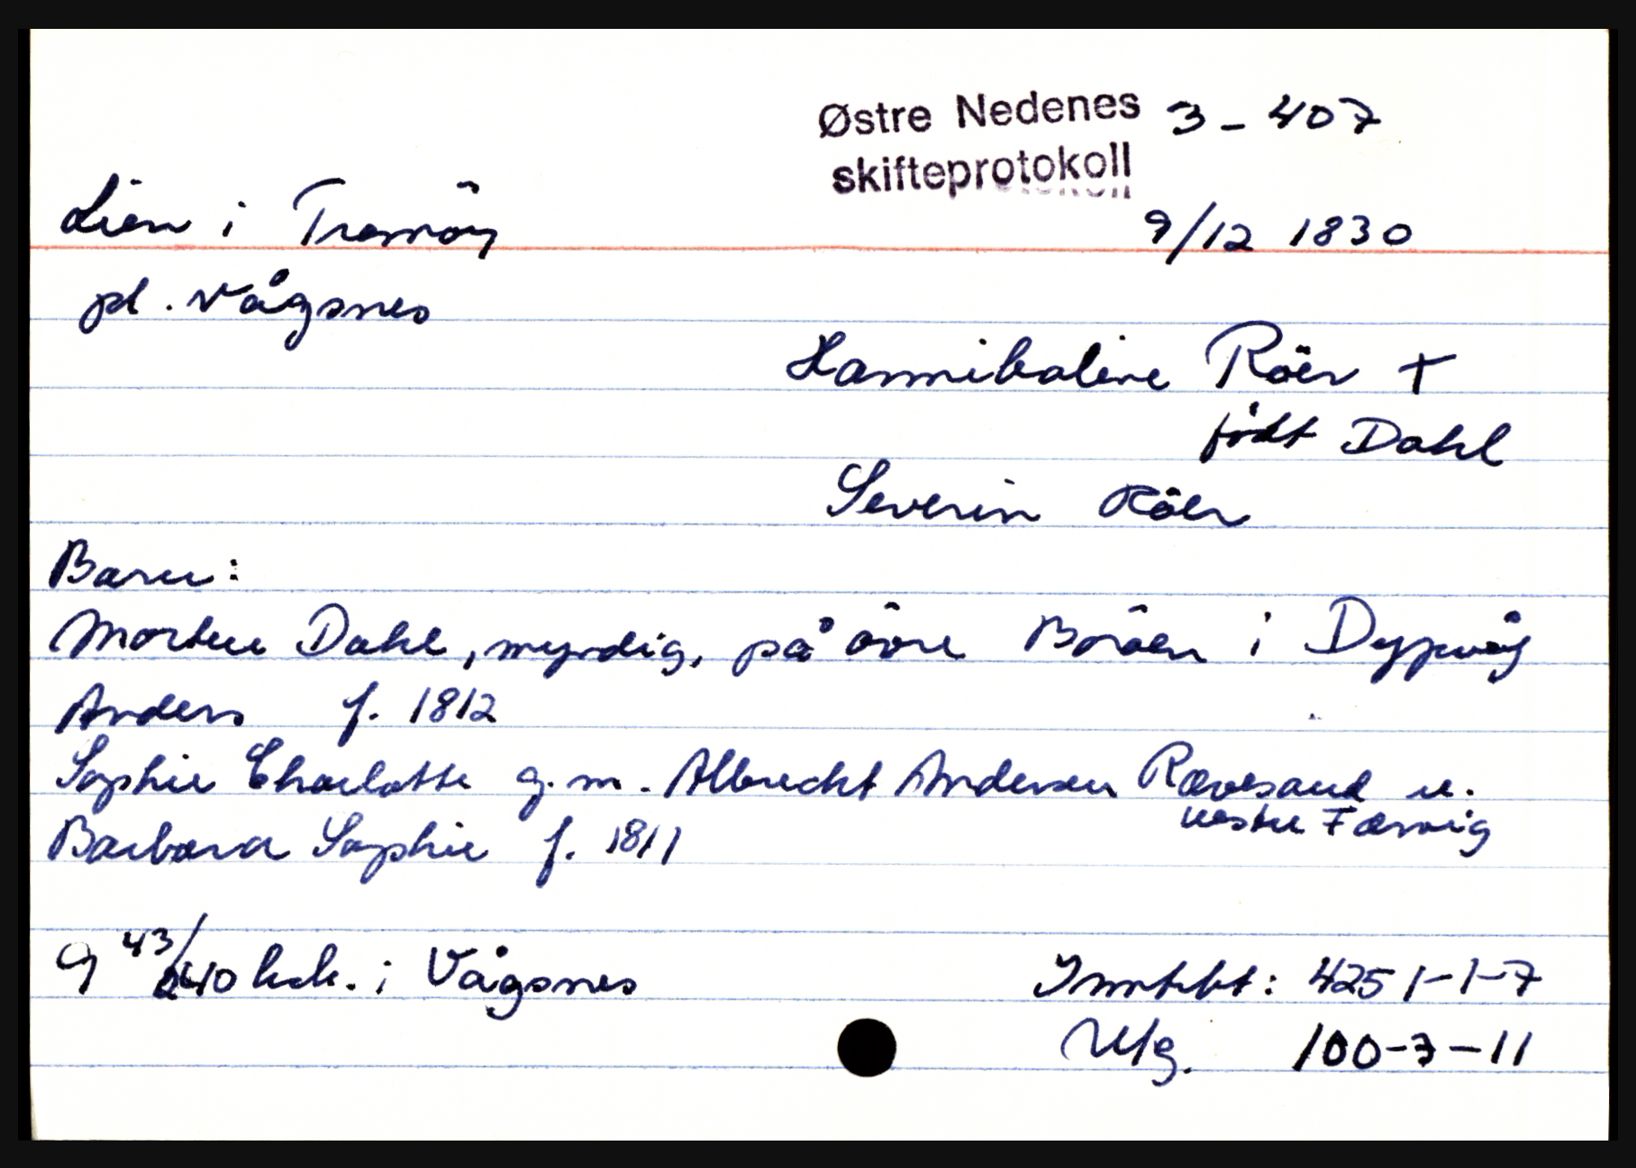 Østre Nedenes 3-407
skifteprotokoll
Lien i Tromöy 9/12 1830
pl. Vågsnes
Hannibaline Röer +
födt Dahl
Severin Röer
Barn:
Morten Dahl, myndig, på övre Boröen i Dypvåg
Anders f. 1812
Sophie Charlotte g.m. Albrecht Andersen Rævesand n.
nestre Færvig
Barbara Sophie f. 1811
9 43/240 hd. i Vågsnes Inntkt: 4251-1-7
Utg. 100-3-11